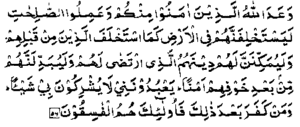 وَعَدَ اللّٰهُ الَّذِيْنَ اٰمَنُوْا مِنْكُمْ وَعَمِلُوا الصّٰلِحٰتِ
لَيَسْتَخْلِفَنَّهُمْ فِي الْاَرْضِ كَمَا اسْتَخْلَفَ الَّذِيْنَ مِنْ قَبْلِهِمْ
وَلَيُمَكِّنَنَّ لَهُمْ دِيْنَهُمُ الَّذِى ارْتَضٰى لَهُمْ وَلَيُبَدِّلَنَّهُمْ
مِّنْ بَعْدِ خَوْفِهِمْ اَمْنًا يَعْبُدُوْنَنِيْ لَا يُشْرِكُوْنَ بِيْ شَيْئًا
وَمَنْ كَفَرَ بَعْدَ ذٰلِكَ فَاُولٰٓئِكَ هُمُ الْفٰسِقُوْنَ ۵۵